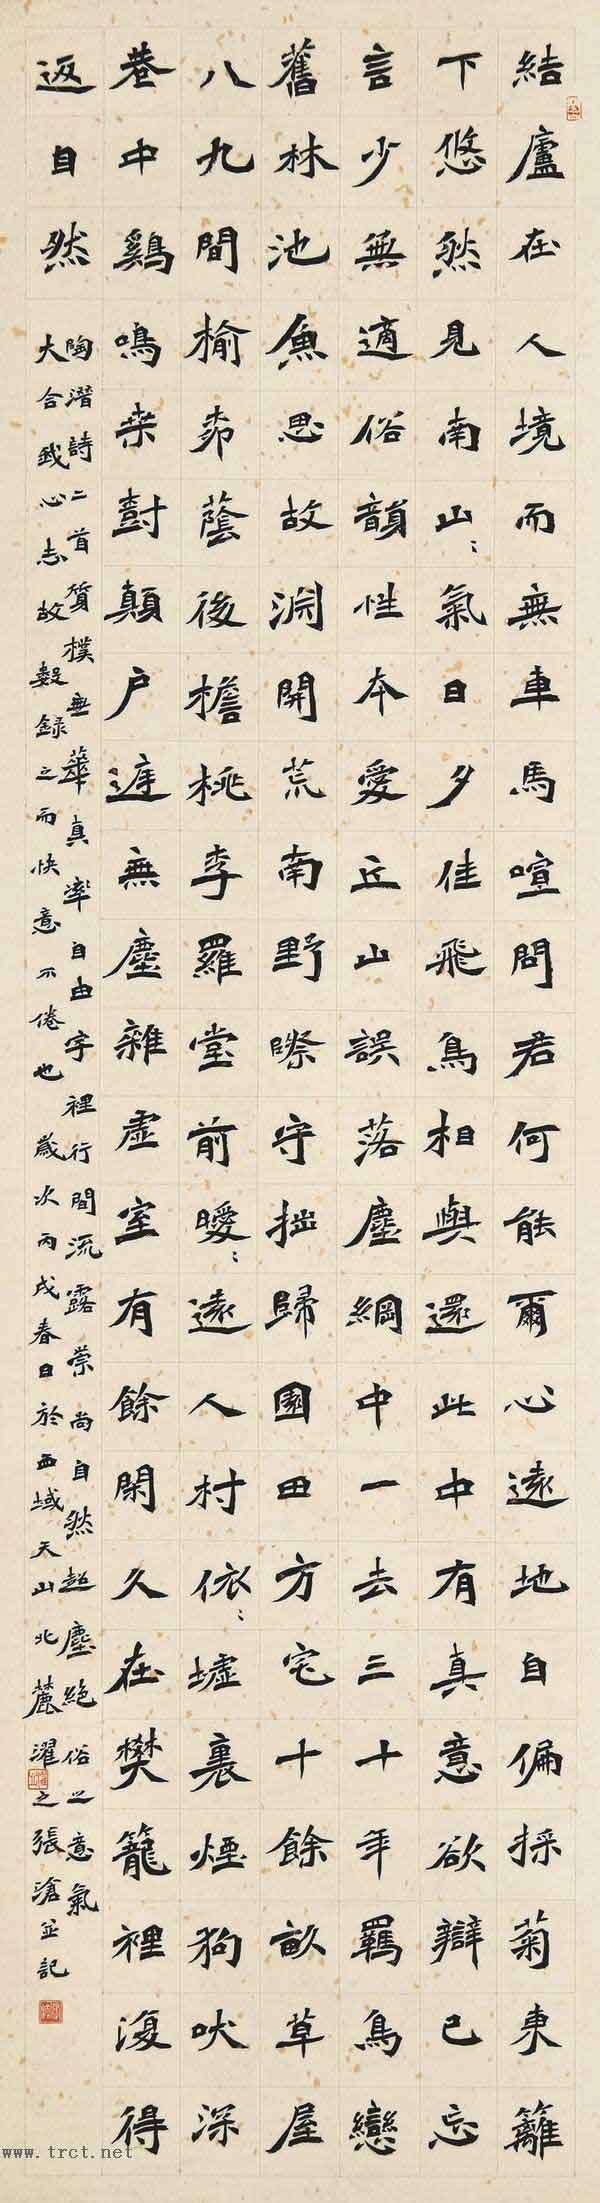 結廬在人境而無車馬喧問君何能爾心遠地自偏採菊東籬
下悠然見南山〻氣日夕佳飛鳥相與還此中有真意欲辯已忘
言少無適俗韻性本愛丘山誤落塵網中一去三十年羈鳥戀
舊林池魚思故淵開荒南野際守拙歸園田方宅十餘畝草屋
八九間榆柳蔭後檐桃李羅堂前曖〻遠人村依〻墟裏煙狗吠深
巷中鷄鳴桒樹顛戶庭無塵雜虛室有餘閑久在樊籠裡復得
返自然
陶潛詩二首質樸無華真率自由字裡行間流露崇尚自然超塵絕俗之意氣
大合我心志故數錄之而快意不倦也歲次丙戌春日於西域天山北麓濯之張滄並記
www.trct.net